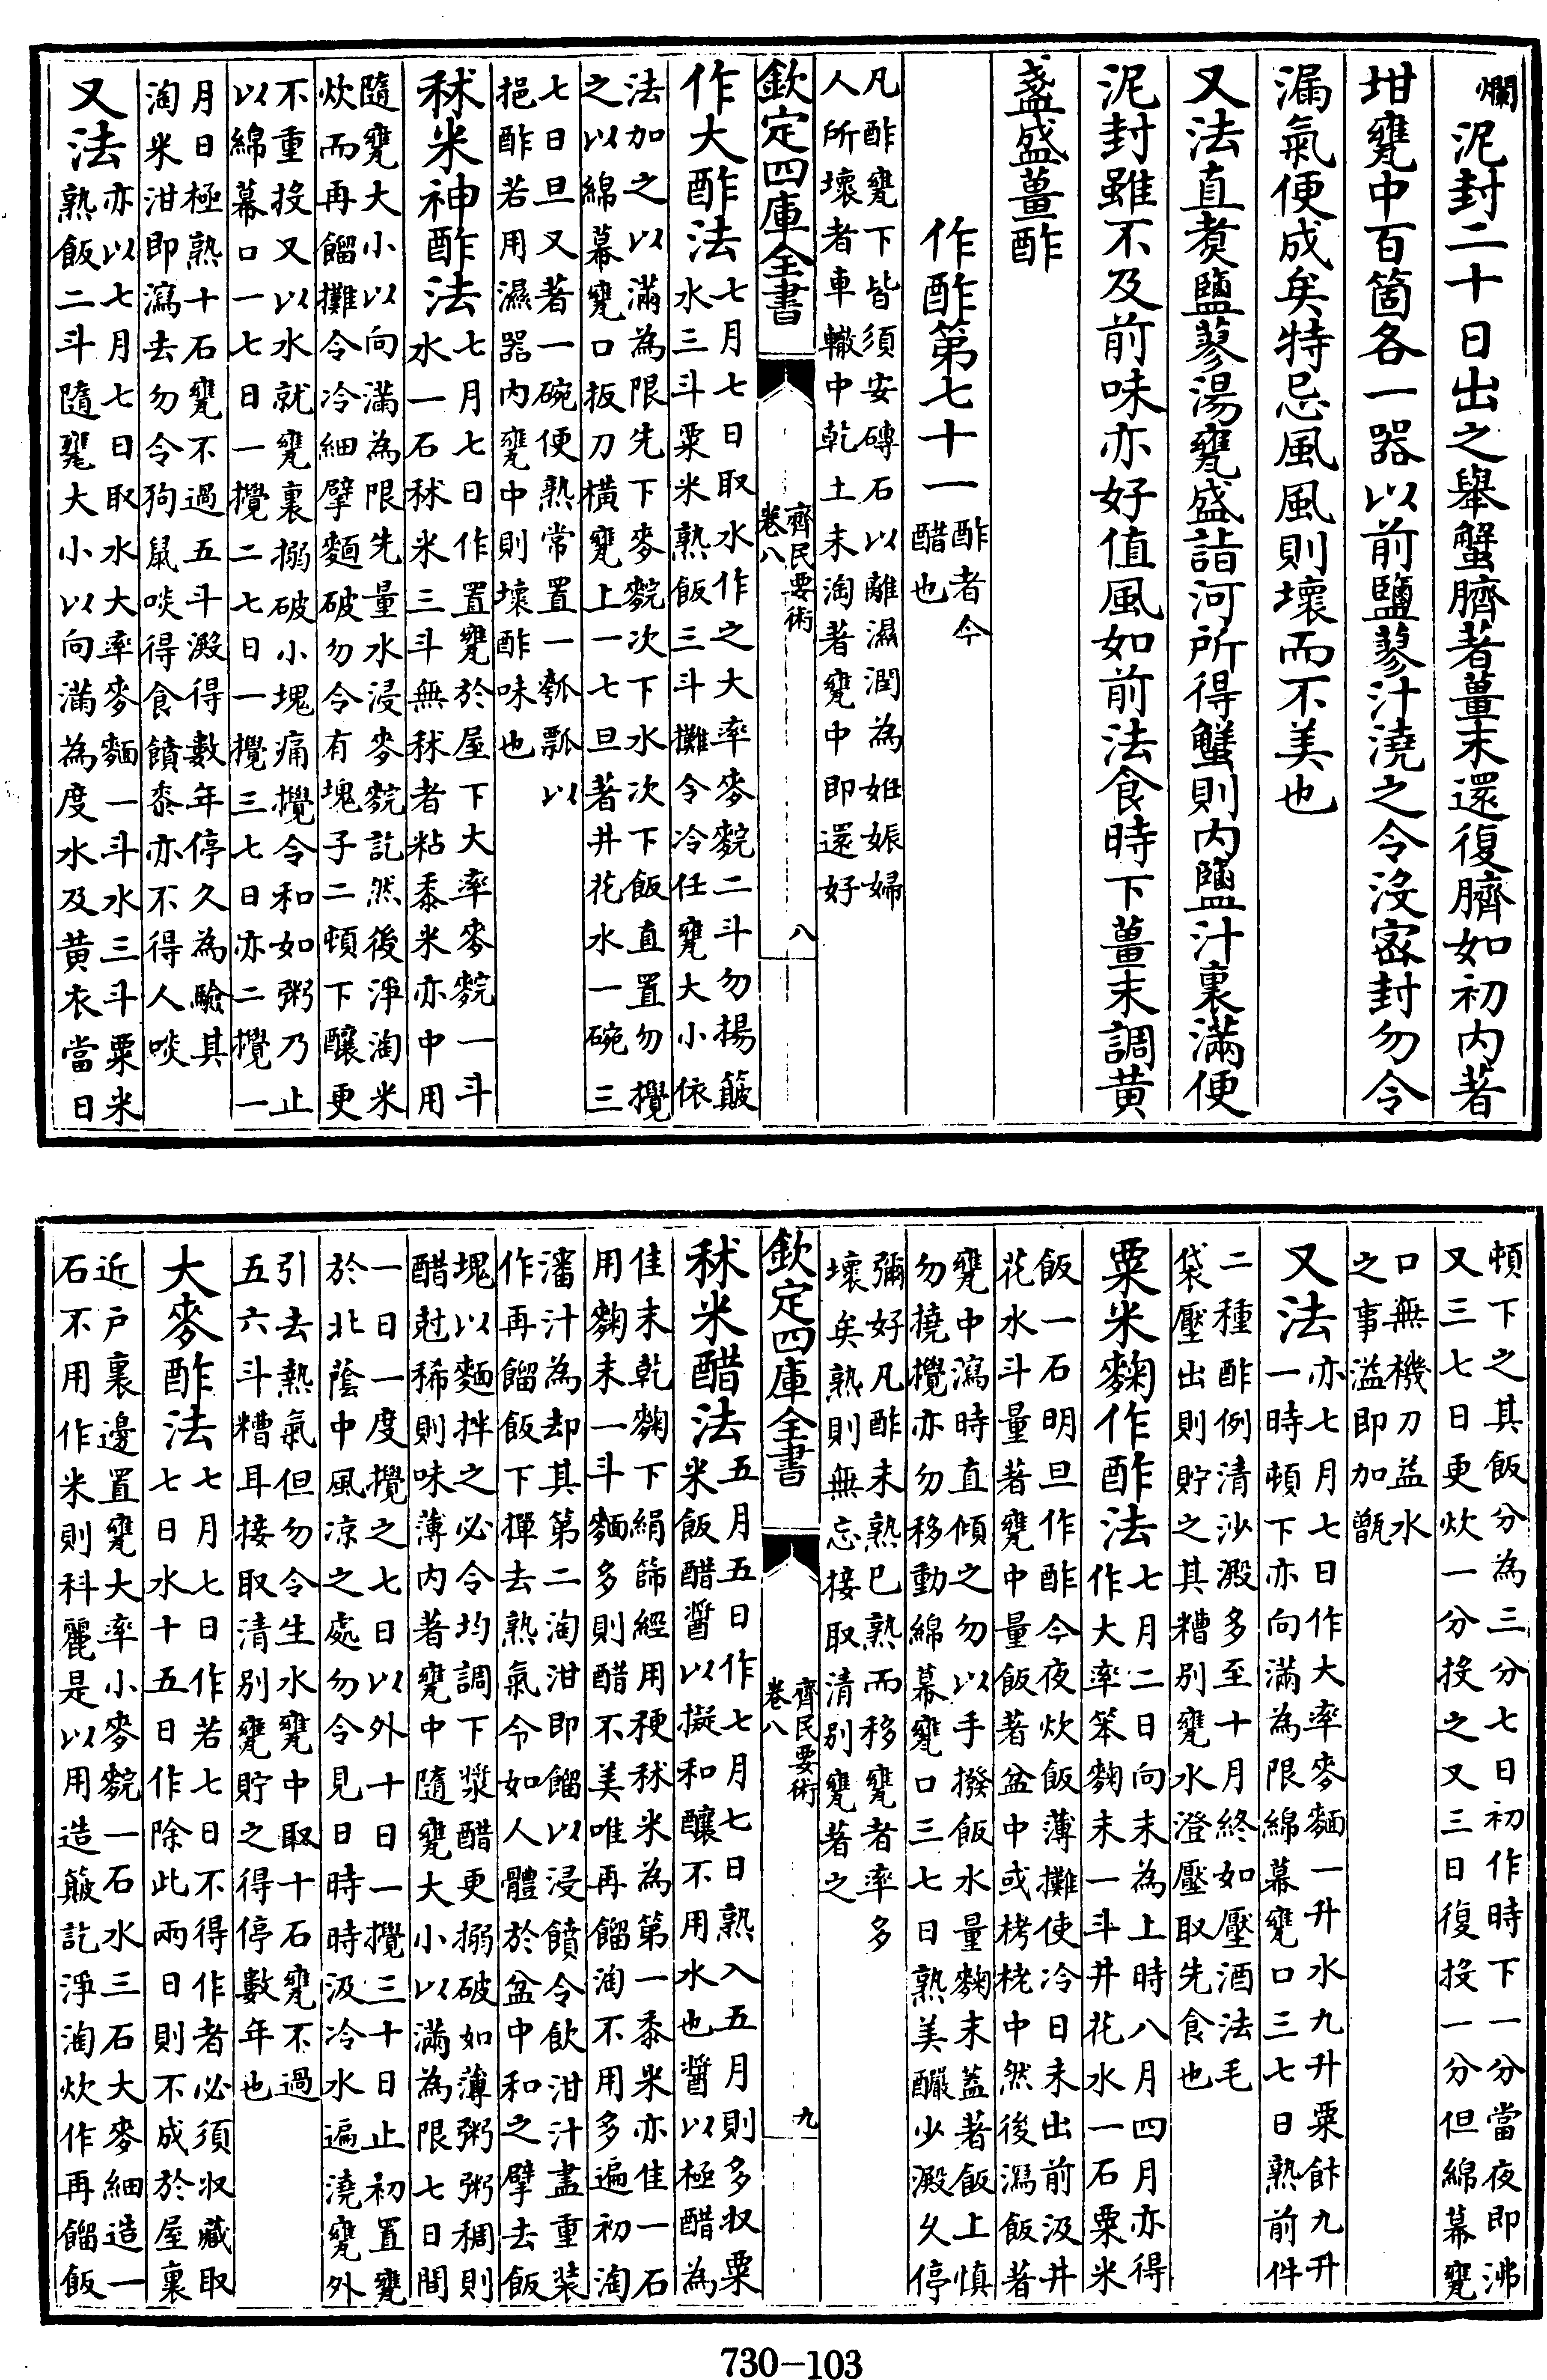 爛泥封二十日出之舉蟹臍著薑末還復臍如初內著
坩甕中百箇各一器以前鹽蓼汁澆之令沒密封勿令
漏氣便成矣特忌風風則壞而不美也
又法直煑鹽蓼湯甕盛詣河所得蟹則內鹽汁裏滿便
泥封雖不及前味亦好值風如前法食時下薑末調黃
盞盛薑酢
作酢第七十一
酢者今
醋也
凡酢甕下皆須安磚石以離濕潤為姙娠婦
人所壞者車轍中乾土末淘著甕中即還好
欽定四庫全書
齊民要術
卷八
八
作大酢法
七月七日取水作之大率麥䴷二斗勿揚簸
水三斗粟米熟飯三斗攤令冷任甕大小依
法加之以滿為限先下麥䴷次下水次下飯直置勿攪
之以綿幕甕口扳刀橫甕上一七旦著井花水一碗三
七日旦又著一碗便熟常置一瓠瓢以
挹酢若用濕器內甕中則壞酢味也
秫米神酢法
七月七日作置甕於屋下大率麥䴷一斗
水一石秫米三斗無秫者粘黍米亦中用
隨甕大小以向滿為限先量水浸麥䴷訖然後淨淘米
炊而再餾攤令冷細擘麵破勿令有塊子二頓下釀更
不重投又以水就甕裏搦破小塊痛攪令和如粥乃止
以綿幕口一七日一攪二七日一攪三七日亦二攪一
月日極熟十石甕不過五斗澱得數年停久為驗其
淘米泔即瀉去勿令狗鼠啖得食饙黍亦不得人啖
又法
亦以七月七日取水大率麥麵一斗水三斗粟米
熟飯二斗隨甕大小以向滿為度水及黃衣當日
頓下之其飯分為三分七日初作時下一分當夜即沸
又三七日更炊一分投之又三日復投一分但綿幕甕
口無機刀益水
之事溢即加甑
又法
亦七月七日作大率麥麵一升水九升粟飰九升
一時頓下亦向滿為限綿幕甕口三七日熟前件
二種酢例清沙澱多至十月終如壓酒法毛
袋壓出則貯之其糟別甕水澄壓取先食也
粟米麴作酢法
七月二日向末為上時八月四月亦得
作大率笨麴末一斗井花水一石粟米
飯一石明旦作酢今夜炊飯薄攤使冷日未出前汲井
花水斗量著甕中量飯著盆中或栲栳中然後瀉飯著
甕中瀉時直傾之勿以手撥飯水量麴末蓋著飯上慎
勿撓攪亦勿移動綿幕甕口三七日熟美釅少澱乆停
彌好凡酢未熟已熟而移甕者率多
壞矣熟則無忘接取清別甕著之
欽定四庫全書
齊民要術
卷八
九
秫米醋法
五月五日作七月七日熟入五月則多収粟
米飯醋醤以擬和釀不用水也醤以極醋為
佳末乾麴下絹篩經用稉秫米為第一黍米亦佳一石
用麴末一斗麵多則醋不美唯再餾淘不用多遍初淘
瀋汁為却其第二淘泔即餾以浸饙令飲泔汁盡重裝
作再餾飯下撣去熱氣令如人體於盆中和之擘去飯
塊以麵拌之必令均調下漿醋更搦破如薄粥粥稠則
醋尅稀則味薄內著甕中隨甕大小以滿為限七日間
一日一度攪之七日以外十日一攪三十日止初置甕
於北蔭中風凉之處勿令見日時時汲冷水遍澆甕外
引去熱氣但勿令生水甕中取十石甕不過
五六斗糟耳接取清別甕貯之得停數年也
大麥酢法
七月七日作若七日不得作者必須収藏取
七日水十五日作除此兩日則不成於屋裏
近戶裏邊置甕大率小麥䴷一石水三石大麥細造一
石不用作米則科麗是以用造簸訖淨淘炊作再餾飯
730-103